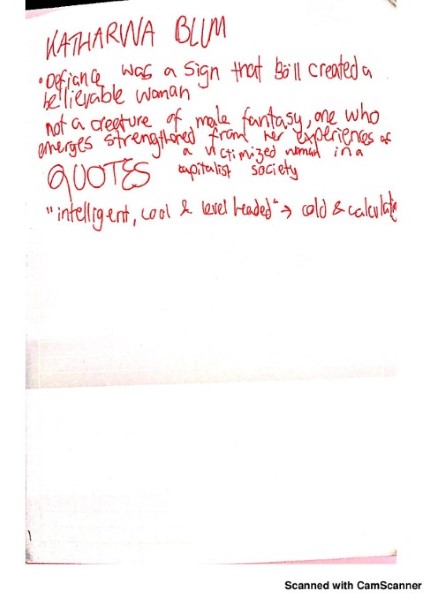 KATHARINA BLUM
• Defiance was a sign that Böll created a
believable woman
not a creature of male fantasy, one who
emerges strengthened from her experiences as
a victimized woman in a
QUOTES capitalist society
"intelligent, cool & level headed" → cold & calculate
Scanned with CamScanner